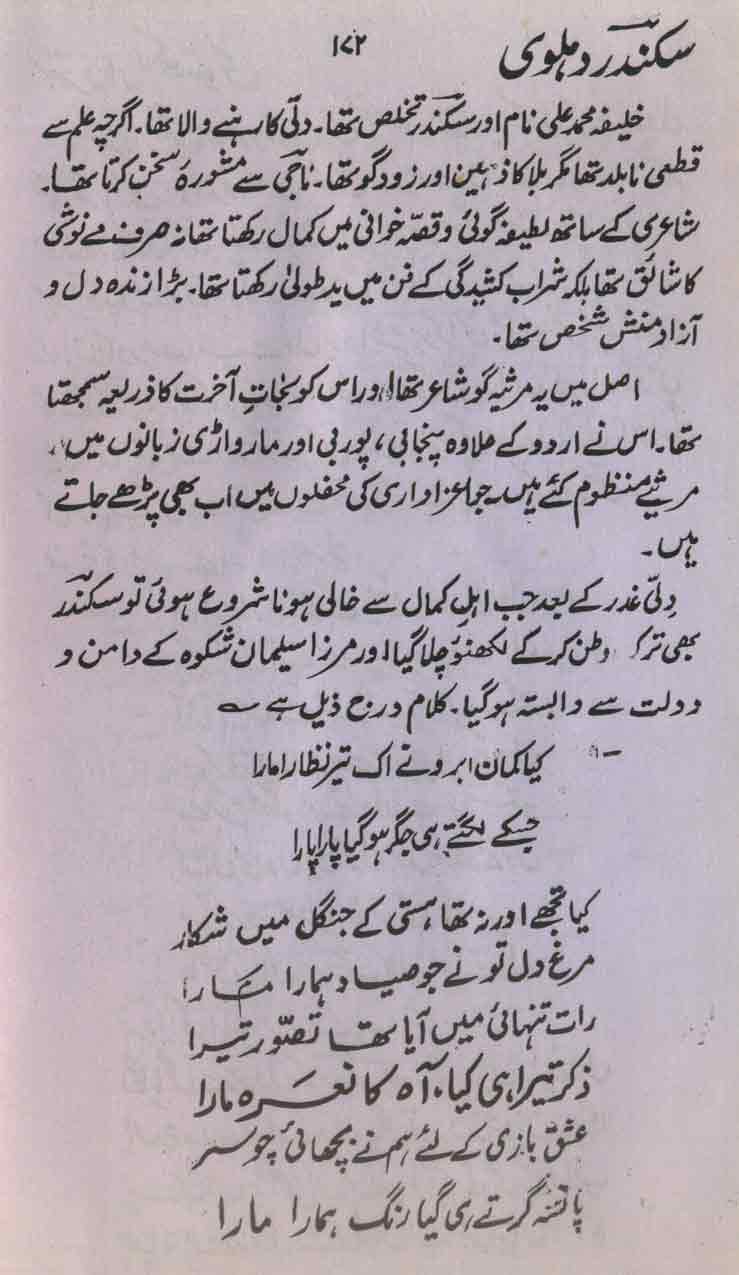 سکندر دہلوی
۱۷۲
خلیفہ محمد علی نام اور سکندر تخلص تھا۔ دلّی کا رہنے والا تھا۔ اگرچہ علم سے
قطعی نابلد تھا مگر بلا کا ذہین اور زود گو تھا۔ ناجی سے مشورۂ سخن کرتا تھا۔
شاعری کے ساتھ لطیفہ گوئی و قصّہ خوانی میں کمال رکھتا تھا نہ صرف مے نوشی
کا شائق تھا بلکہ شراب کشیدگی کے فن میں ید طولیٰ رکھتا تھا۔ بڑا زندہ دل و
آزاد منش شخص تھا۔
اصل میں یہ مرثیہ گو شاعر تھا اور اس کو نجاتِ آخرت کا ذریعہ سمجھتا
تھا۔ اس نے اردو کے علاوہ پنجابی، پوربی اور مارواڑی زبانوں میں،
مرثیے منظوم کئے ہیں۔ جو اعزاداری کی محفلوں میں اب بھی پڑھے جاتے
ہیں۔
دِلّی غدر کے بعد جب اہلِ کمال سے خالی ہونا شروع ہوئی تو سکندر
بھی ترک وطن کر کے لکھنؤ چلا گیا اور مرزا سیلمان شکوہ کے دامن و
دولت سے وابستہ ہو گیا۔ کلام درج ذیل ہے ؎
۱۔ کیا کمان ابرو نے اک تیر نظارا مارا
جسکے لگتے ہی جگر ہو گیا پارا پارا
کیا تجھے اور نہ تھا ہستی کے جنگل میں شکار
مرغ دل تو نے جو صیاد ہمارا مارا
رات تنہائی میں آیا تھا تصّور تیرا
ذکر تیرا ہی کیا۔ آہ کا نعرہ مارا
عشق بازی کے لئے ہم نے بچھائی چوسر
پانسہ گرتے ہی گیا رنگ ہمارا مارا